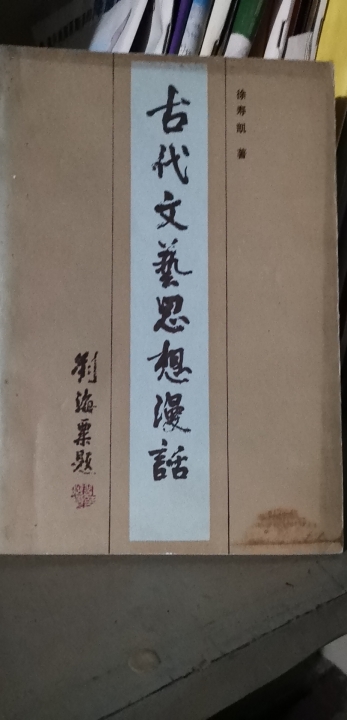 徐寿凯 著
古代文藝思想漫話
劉海粟題